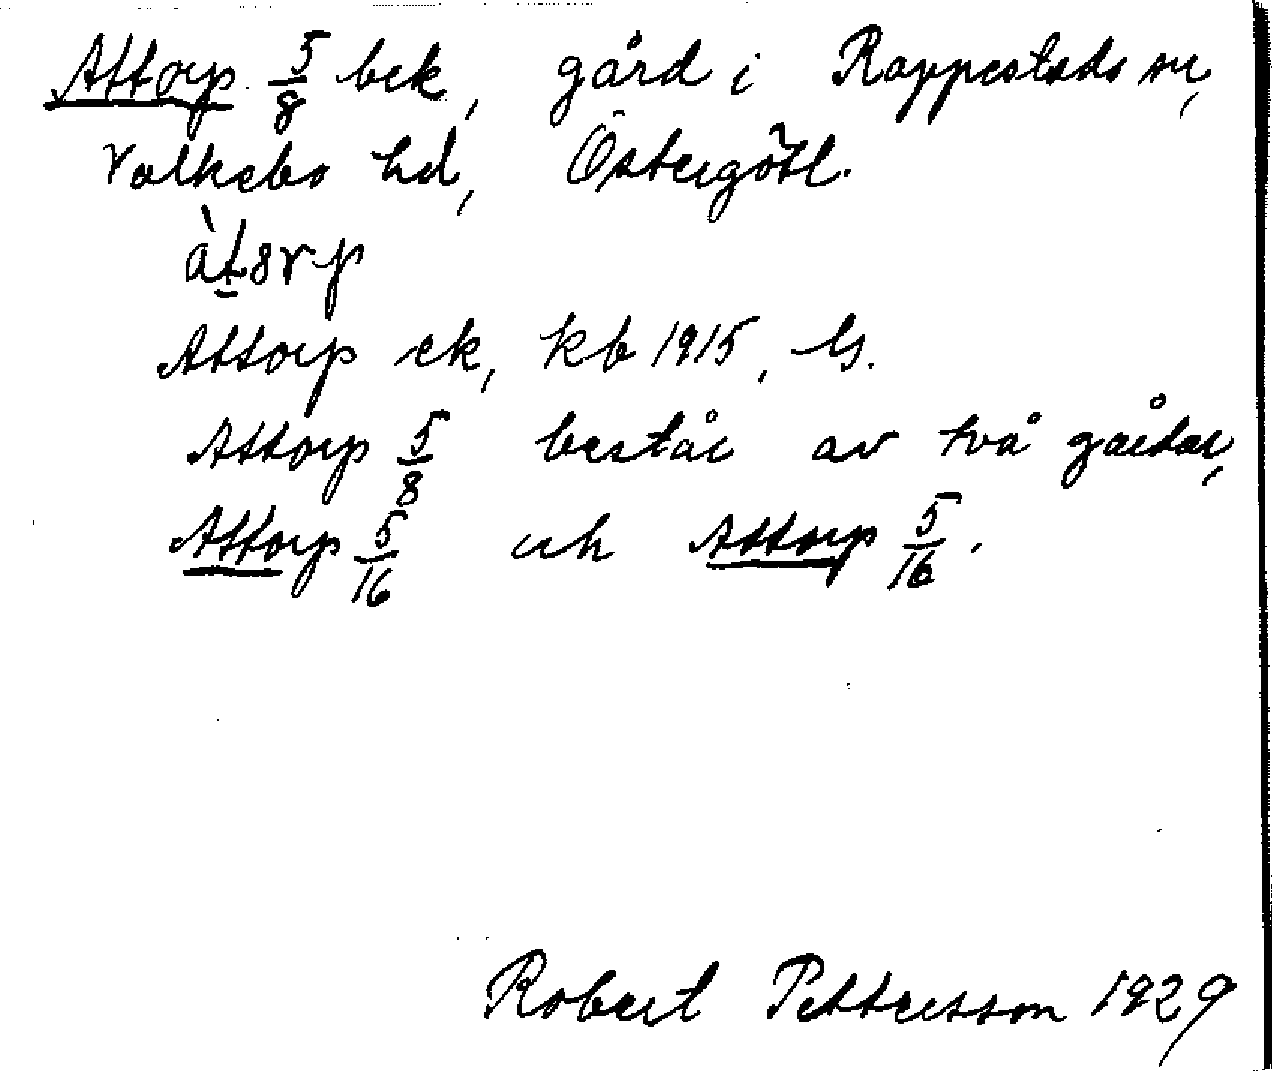 Attorp 5/8 bek, gård i Rappestads sn,
Valkebo hd, Östergötl.
Attorp ek, kb 1915,
Attorp 5/8 består av två gårdar,
Attorp 5/16 och Attorp 5/16.
Robert Pettersson 1929